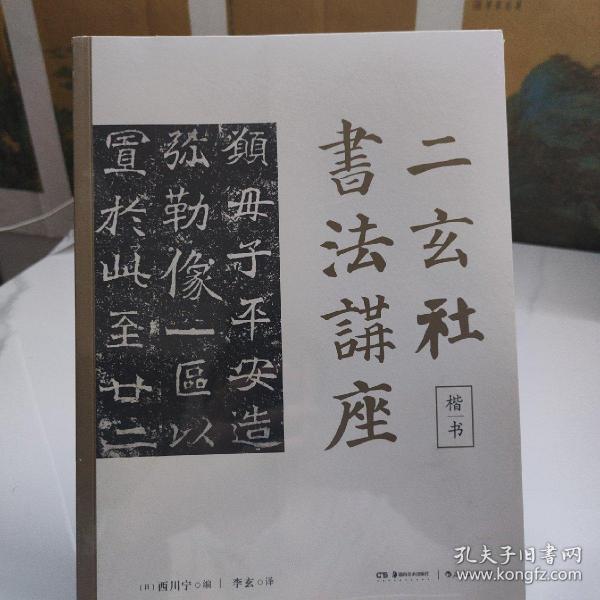 二玄社
書法講座
楷书
願毋子平安造
弥勒像一區以
置於此至廿二
〔日〕西川宁◎编 | 李玄◎译
湖南美术出版社
孔夫子旧书网
www.kongfz.com